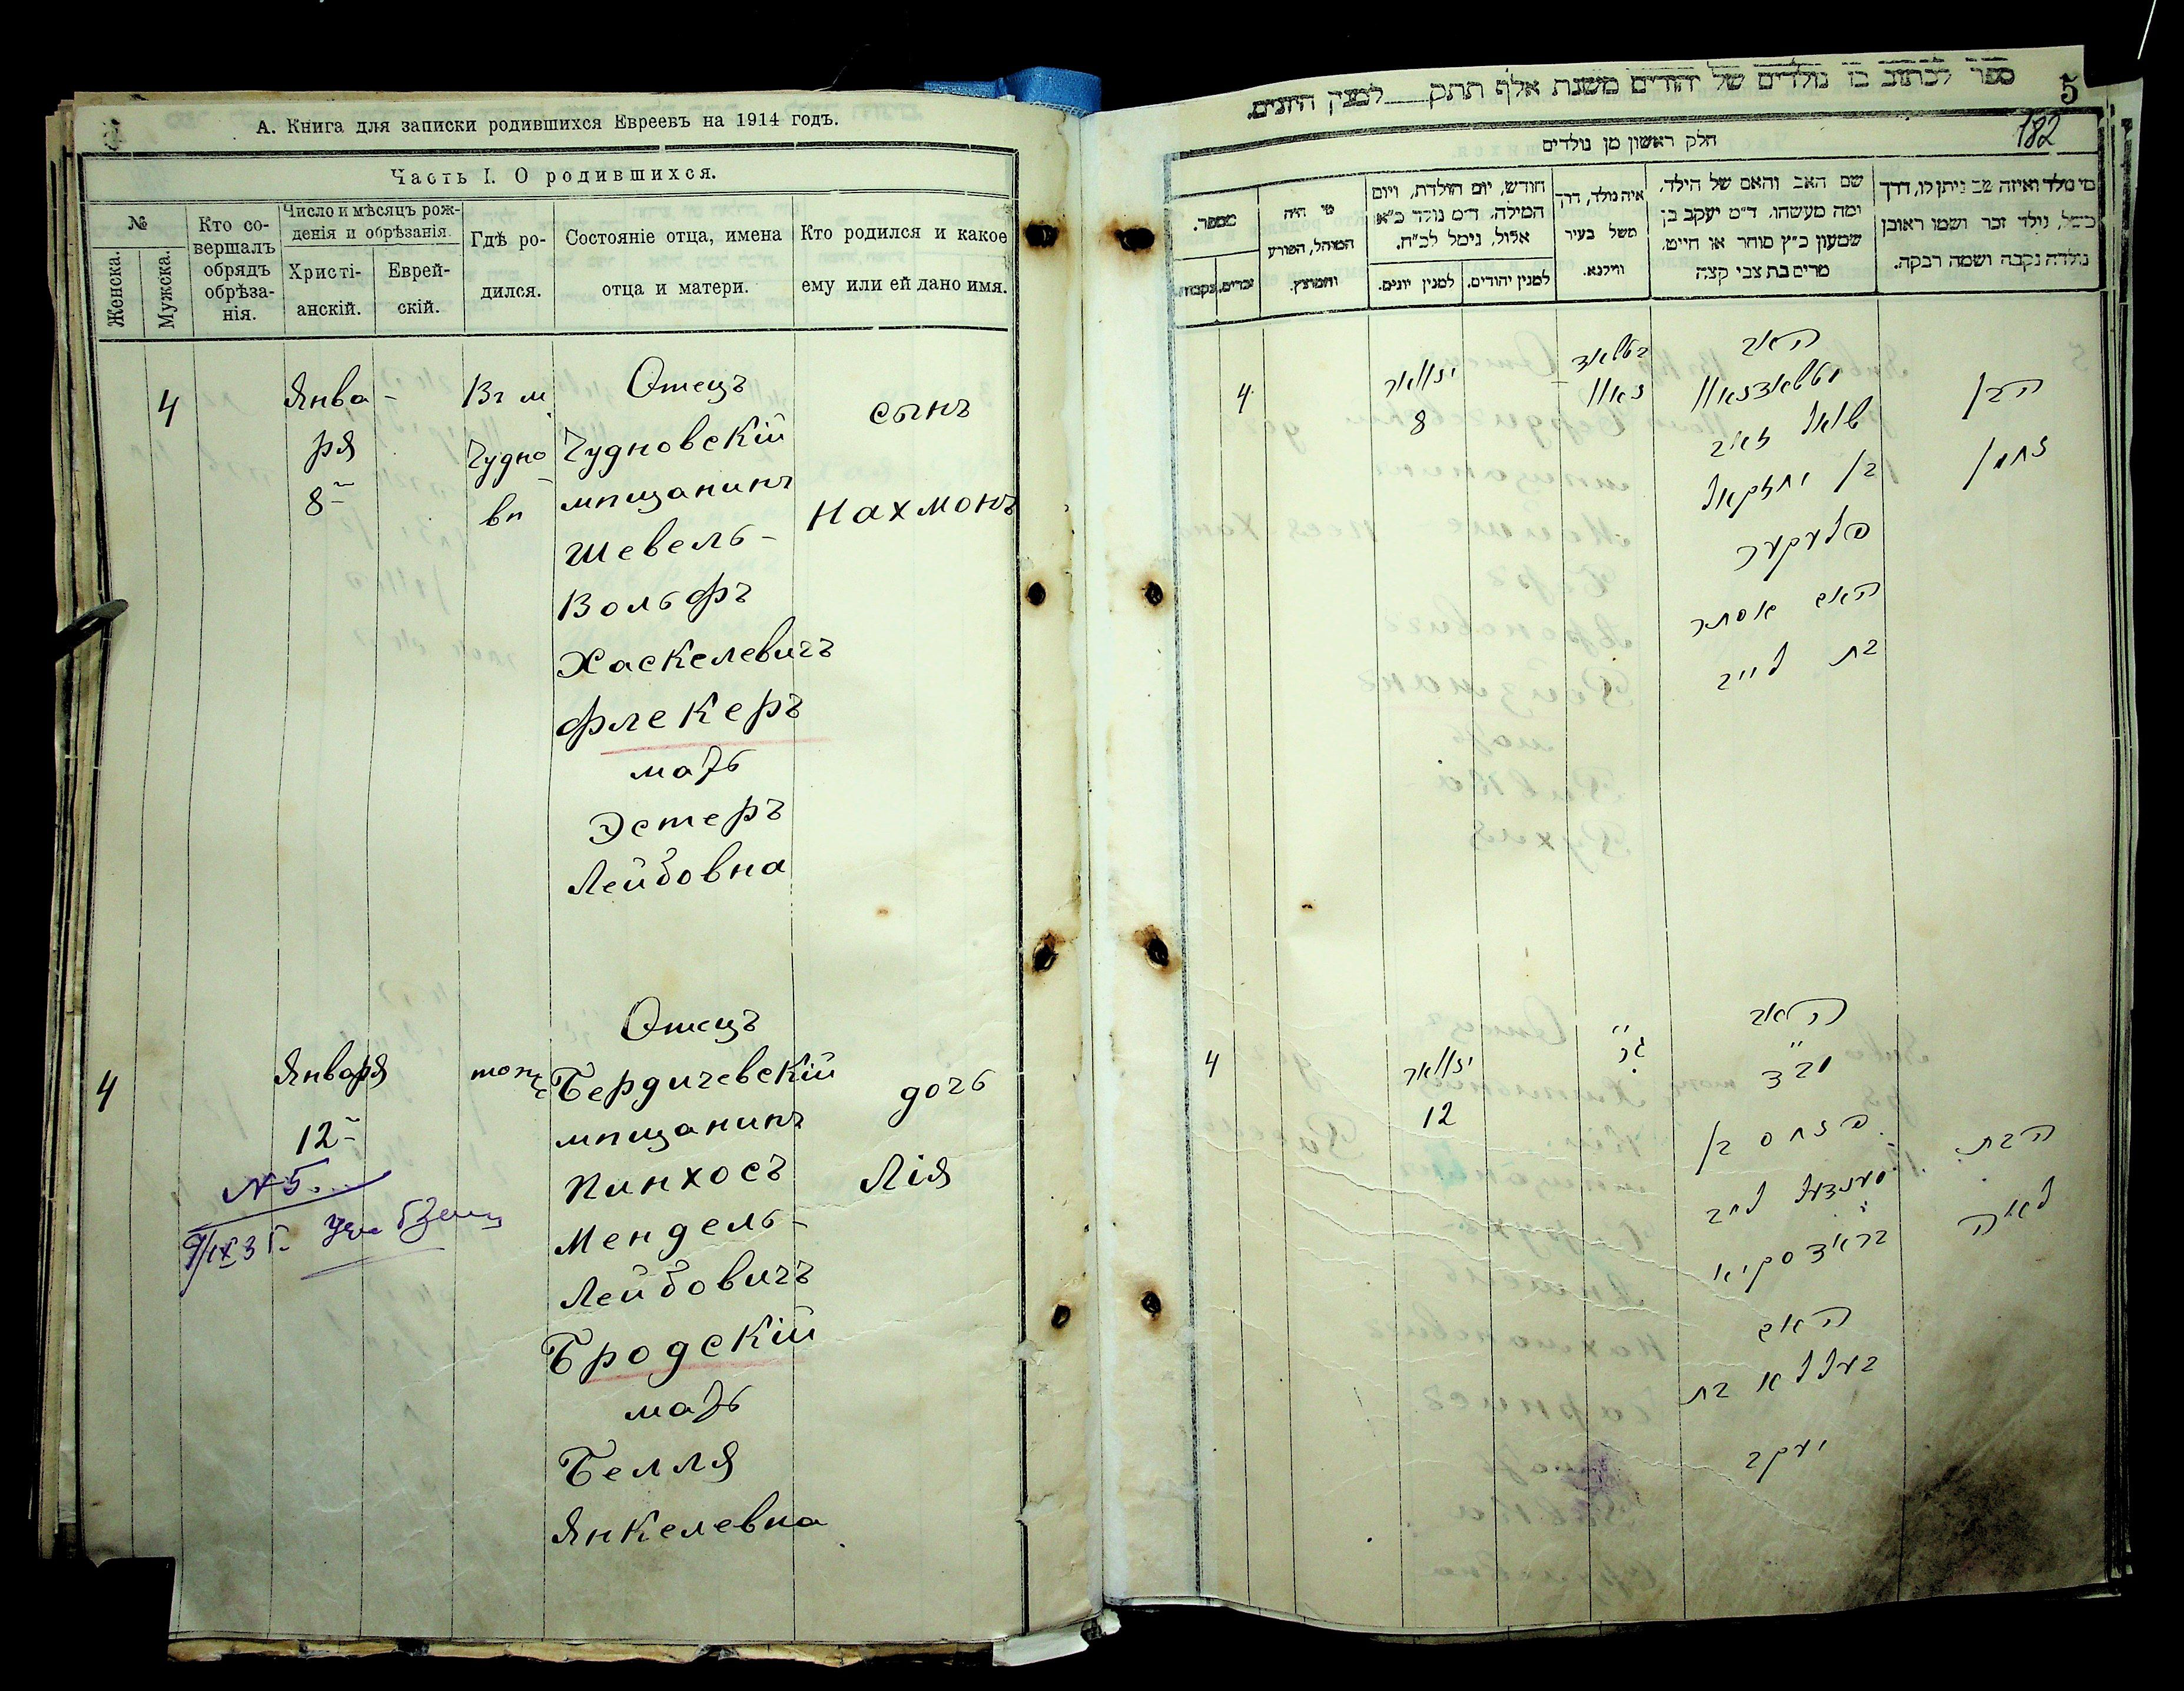 А. Книга для записки родившихся Евреевъ на 1914 годъ.
Часть I. О родившихся.
№
Женска.
Мужска.
Кто со-
вершалъ
обрядъ
обрѣза-
нія.
Число и мѣсяцъ рож-
денія и обрѣзанія.
Христі-
анскій.
Еврей-
скій.
Гдѣ ро-
дился.
Состояніе отца, имена
отца и матери.
Кто родился и какое
ему или ей дано имя.
4
Янва-
ря
8
Въ м.
Чудно-
вѣ
Отецъ
Чудновскій
мѣщанинъ
Шевель-
Вольфъ
Хаскелевичъ
Флекеръ
мать
Эстеръ
Лейбовна
сынъ
Нахмонъ
4
Января
12
№ 5
тоже
Отецъ
Бердичевскій
мѣщанинъ
Пинхосъ
Мендель-
Лейбовичъ
Бродскій
мать
Белля
Янкелевна
дочь
Лія
ספר לכתוב בו נולדים של יהודים משנת אלף תתק למנין היונים.
5
182
חלק ראשון מן נולדים
מספר.
זכרים.
נקבות.
מי היה
המוהל, הפורע
והמוצץ.
חודש, יום הולדת, ויום
המילה. ד"מ נולד כ"א
אלול, נימל לכ"ח.
למנין יונים.
למנין יהודים.
איה נולד, דרך
משל בעיר
ווילנא.
שם האב והאם של הילד,
ומה מעשהו. ד"מ יעקב בן
שמעון כ"ץ סוחר או חייט,
מרים בת צבי קצה
מי נולד ואיזה שם ניתן לו, דרך
משל, נולד זכר ושמו ראובן
נולדה נקבה ושמה רבקה.
4
יאנואר
8
האב
שאול זאב
בן יחזקאל
פלעקער
האם אסתר
בת לייב
הבן
נחמן
4
יאנואר
12
האב
פנחס בן
מענדעל לייב
בראדסקיא
האם
בעללא בת
יעקב
הבת
לאה